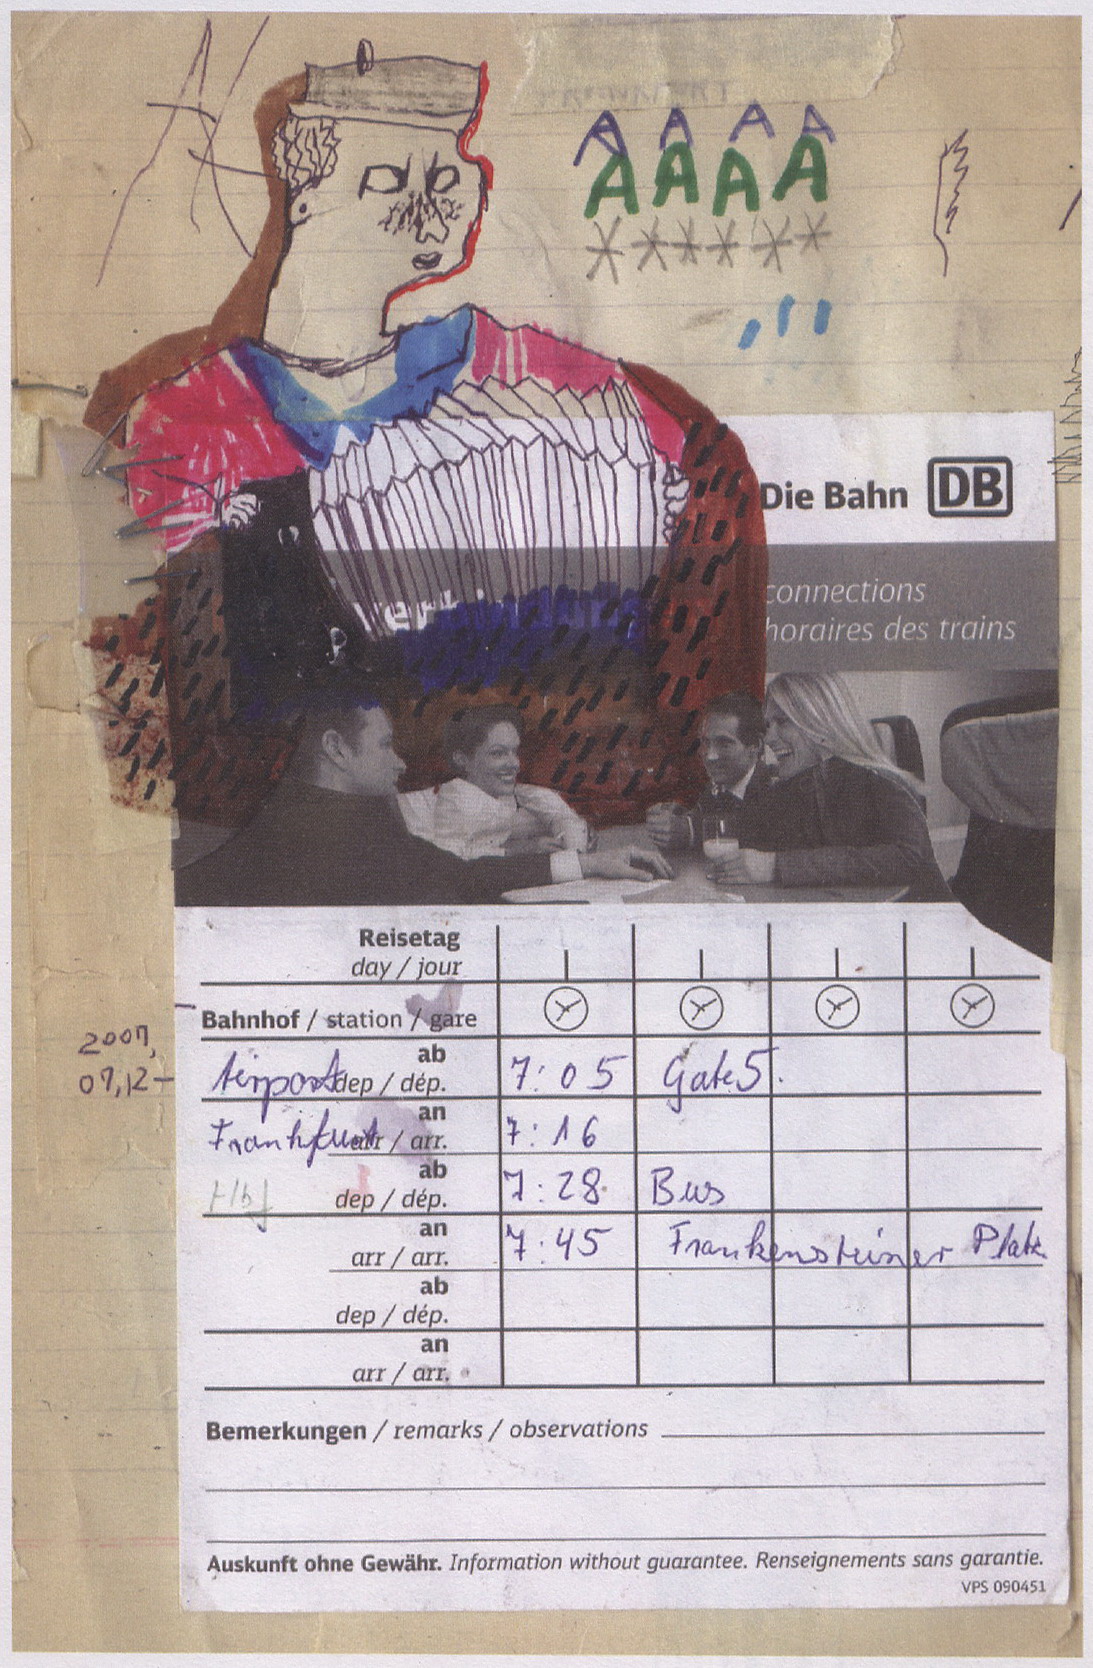 A A A A
A A A A
Die Bahn DB
connections
horaires des trains
Reisetag
day / jour
Bahnhof / station / gare
2007,
07,12-
Airport
ab
dep / dép.
7:05 Gate 5.
Frankfurt
an
arr / arr.
7:16
Hbf
ab
dep / dép.
7:28 Bus
an
arr / arr.
7:45 Frankensteiner Platz
ab
dep / dép.
an
arr / arr.
Bemerkungen / remarks / observations
Auskunft ohne Gewähr. Information without guarantee. Renseignements sans garantie.
VPS 090451